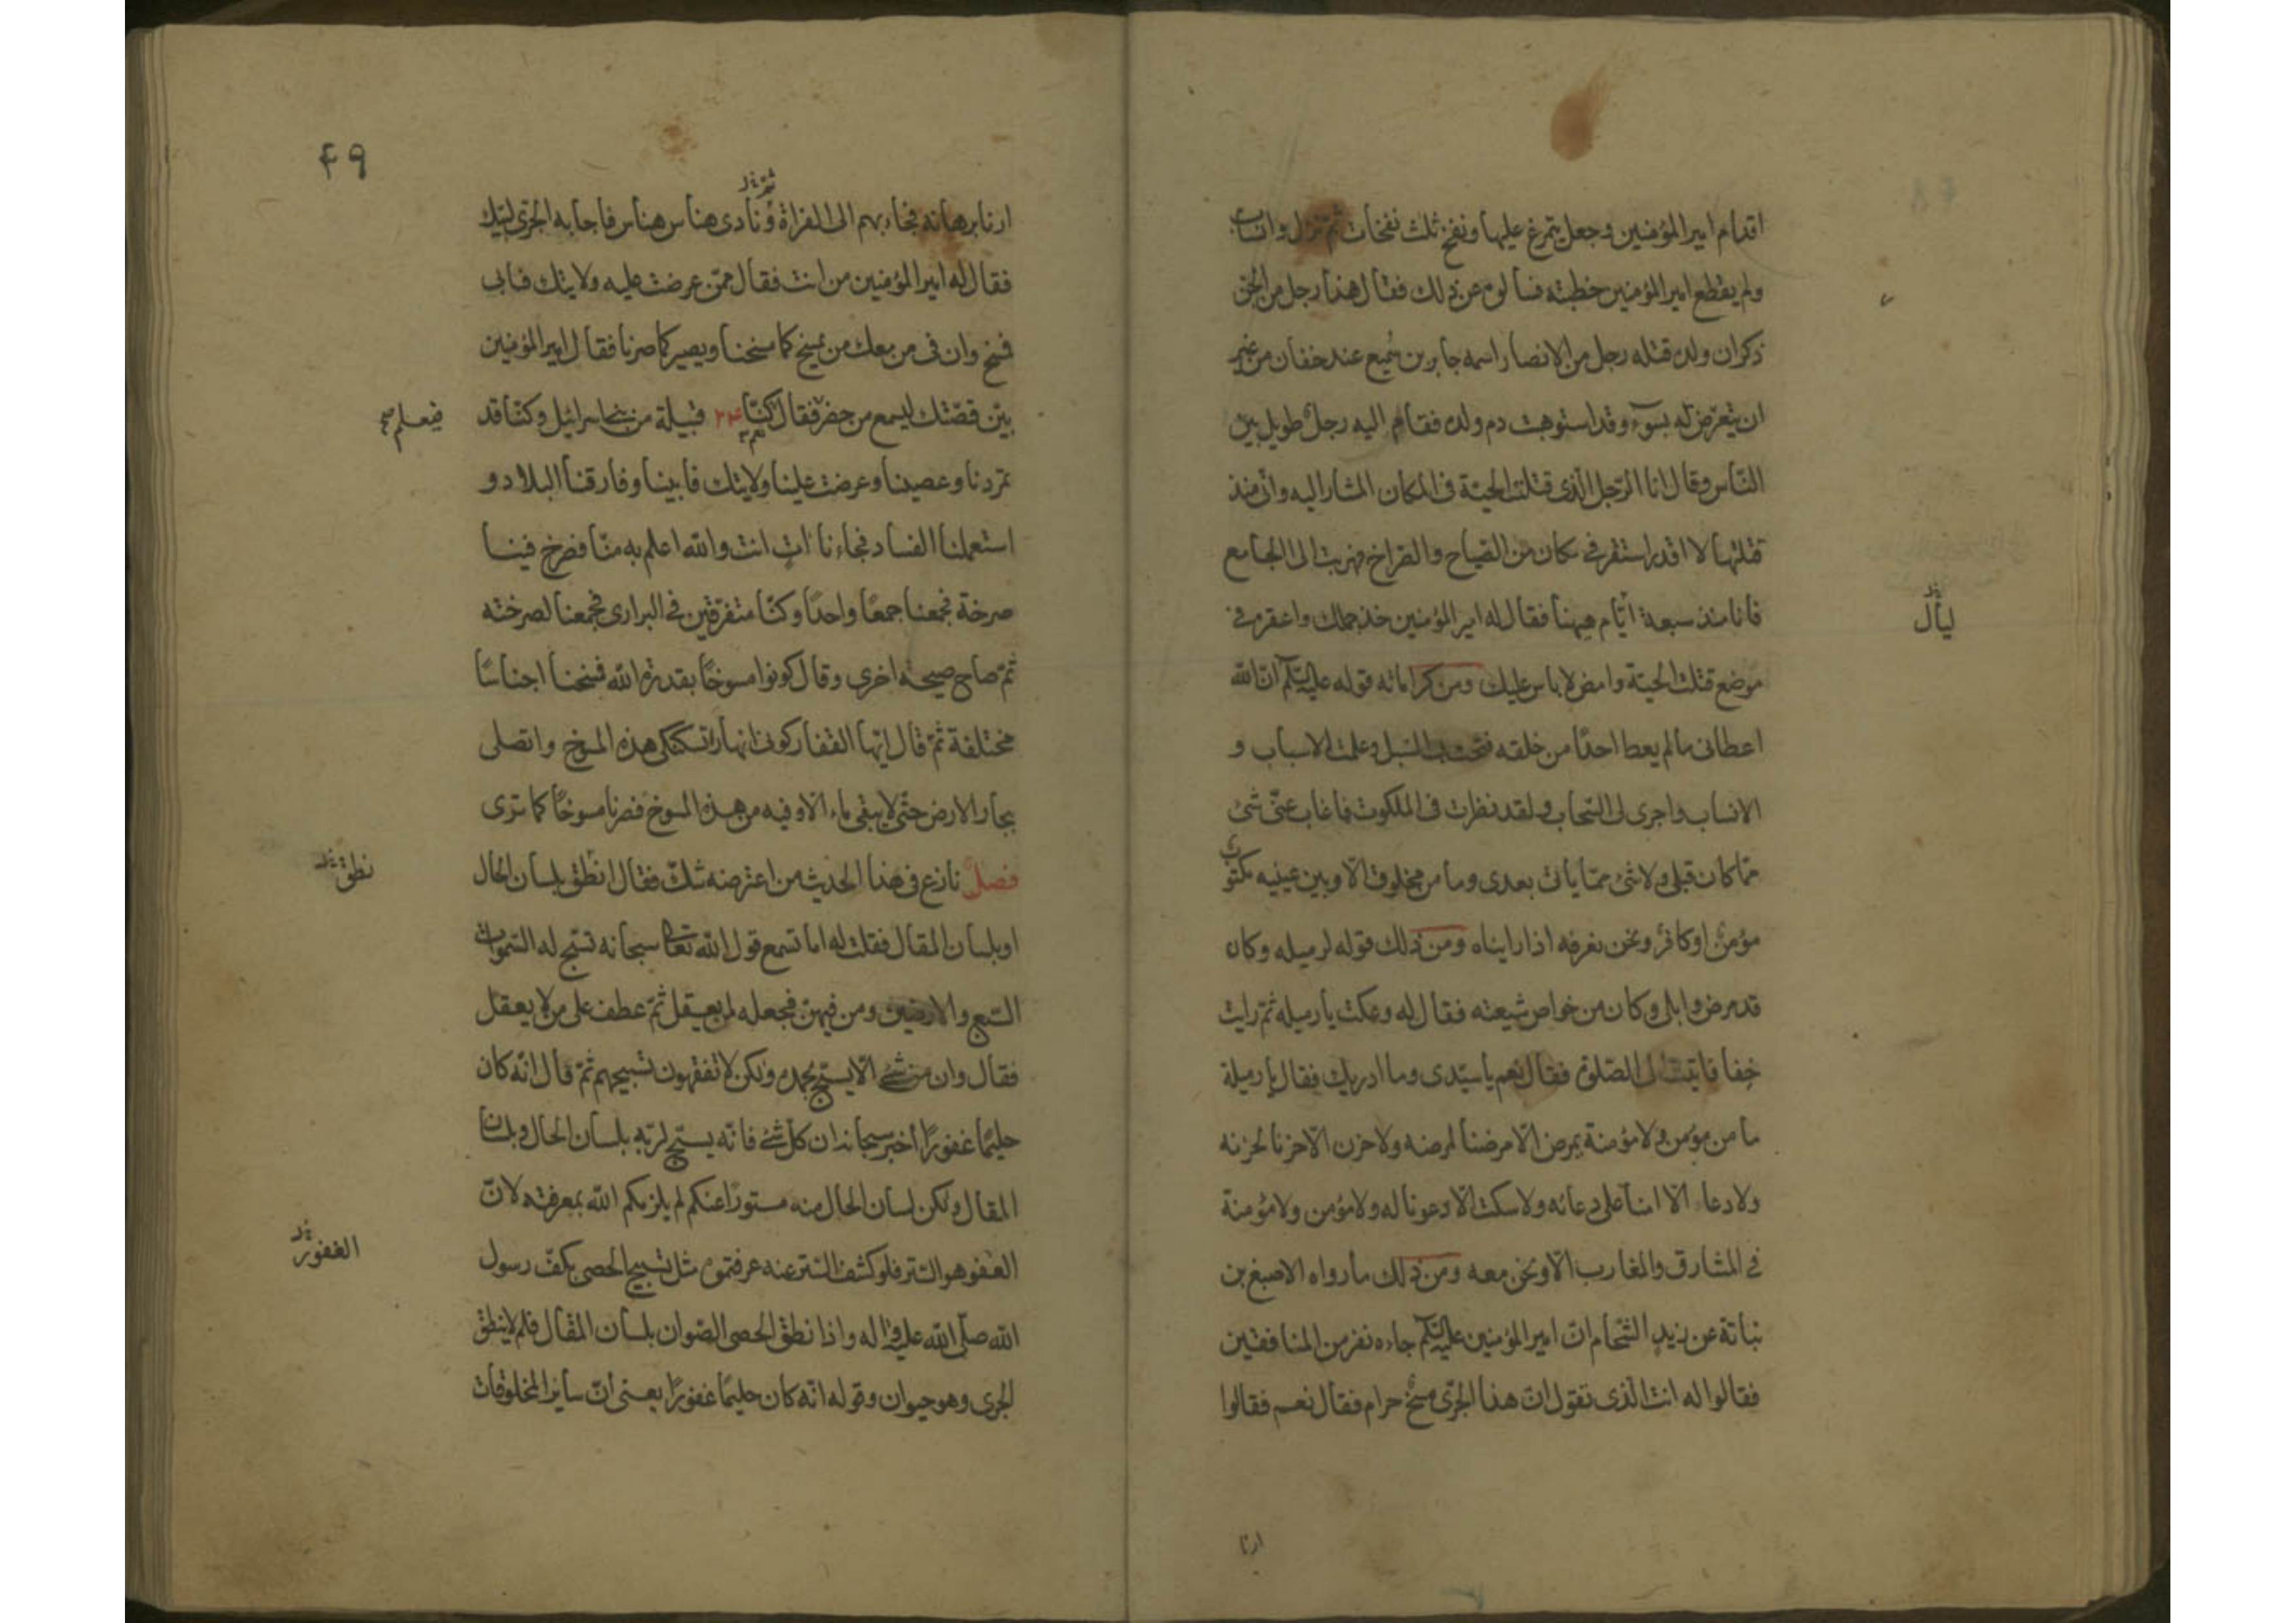 اقدام امير المؤمنين وجعل يتمرغ عليها ونفخ ثلث نفخات ثم نزل وانساب
ولم يقطع امير المؤمنين خطبته فسألوه عن ذلك فقال هذا رجل من الجن
ذكر ان ولده قتله رجل من الانصار اسمه جابر بن سميع عند خفان من غير
ان يتعرض له بسوء وقد استوهبت دم ولده فقام اليه رجل طويل بين
الناس وقال انا الرجل الذى قتلت الحية فى المكان المشار اليه وانى منذ
قتلتها لا اقدر استقر فى مكان من الصياح والصراخ فهربت الى الجامع
فانا منذ سبعة ايام هيهنا فقال له امير المؤمنين خذ جملك واعقره فى
ليال
موضع قتلت الحية وامض لا باس عليك ومن كراماته قوله عليه السلم ان الله
اعطانى مالم يعط احدًا من خلقه فتحت لى السبل وعلمت الاسباب و
الانساب واجرى لى السحاب ولقد نظرت فى الملكوت فما غاب عنى شئ
مما كان قبلى ولا شئ مما ياتى بعدى وما من مخلوق الا وبين عينيه مكتوب
مؤمن او كافر ونحن نعرفه اذا رايناه ومن ذلك قوله لرميله وكان
قد مرض وابلى وكان من خواص شيعته فقال له وعكت يا رميله ثم رايت
خفا فاتيت الى الصلوة فقال نعم يا سيدى وما ادريك فقال يا رميلة
ما من مؤمن ولا مؤمنة يمرض الا مرضنا لمرضه ولا حزن الا حزنا لحزنه
ولا دعا الا امنا على دعائه ولا سكت الا دعونا له ولا مؤمن ولا مؤمنة
فى المشارق والمغارب الا ونحن معه ومن ذلك ما رواه الاصبغ بن
نباتة عن زيد الشحام ان امير المؤمنين عليه السلم جاءه نفر من المنافقين
فقالوا له انت الذى تقول ان هذا الجرى مسخ حرام فقال نعم فقالوا
ارنا
۴۹
ارنا برهانه فجاء بهم الى الفراة ونادى هناس هناس فاجابه الجرى لبيك
فقال له امير المؤمنين من انت فقال ممن عرضت عليه ولايتك فابى
فمسخ وان فى من معك من يمسخ كما مسخنا ويصير كما صرنا فقال امير المؤمنين
بين قصتك ليسمع من حضر فقال كنا ۲۴ قبيلة من بنى اسرائيل وكنا قد
فيعلم
تمردنا وعصينا وعرضت علينا ولايتك فابينا وفارقنا البلاد و
استعملنا الفساد فجاءنا ات انت والله اعلم به منا فصرخ فينا
صرخة فجمعنا جمعًا واحدًا وكنا متفرقين فى البرارى فجمعنا لصرخته
ثم صاح صيحة اخرى وقال كونوا مسوخًا بقدرة الله فمسخنا اجناسًا
مختلفة ثم قال ايها القفار كونى انهارا تسكنكى هذه المسوخ واتصلى
بحار الارض حتى لا يبقى ماء الا وفيه من هذه المسوخ فصرنا مسوخًا كما ترى
فصل نازع فى هذا الحديث من اعترضه شك فقال انطق بلسان الحال
نطق
او بلسان المقال فقلت له اما تسمع قول الله تعالى سبحانه تسبح له السموات
السبع والارضين ومن فيهن فجعله لمن يعقل ثم عطف على من لا يعقل
فقال وان من شئ الا يسبح بحمده ولكن لا تفقهون تسبيحهم ثم قال انه كان
حليمًا غفورًا اخبر سبحانه ان كل شئ فانه يسبح لربه بلسان الحال وبلسان
المقال ولكن لسان الحال منه مستورًا عنكم لم يلزمكم الله بمعرفته لان
العفو هو الستر فلو كشف الستر عنه عرفتموه مثل تسبيح الحصى بكف رسول
الغفور
الله صلى الله عليه واله واذا نطق الحصى الصوان بلسان المقال فلم لا ينطق
الجرى وهو حيوان وقوله انه كان حليمًا غفورًا يعنى ان ساير المخلوقات